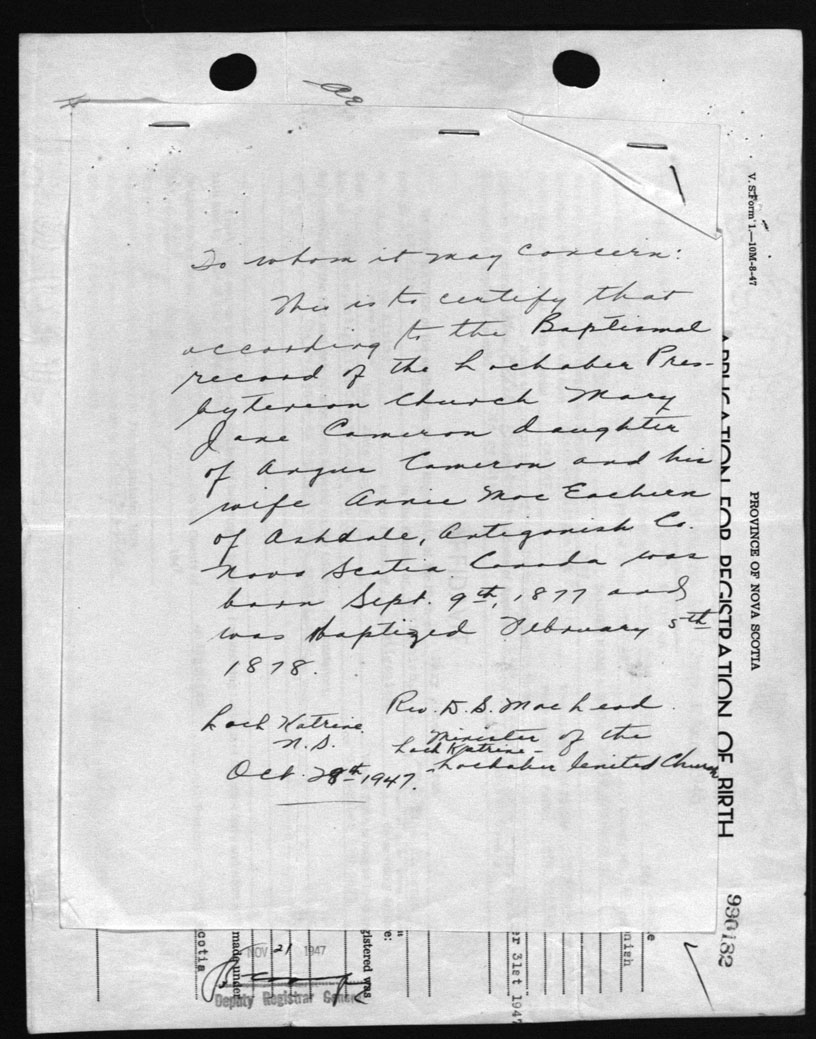 To whom it may concern:
This is to certify that
according to the Baptismal
record of the Lochaber Pres-
byterian Church Mary
Jane Cameron daughter
of Angus Cameron and his
wife Annie MacEachern
of Ashdale, Antigonish Co.
Nova Scotia Canada was
born Sept. 9th, 1877 and
was baptized February 5th
1878.
Rev. D. S. MacLeod.
Loch Katrine
N.S.
Minister of the
Loch Katrine -
- Lochaber United Church
Oct. 28th 1947.
V. S. Form 1.—10M-8-47
PROVINCE OF NOVA SCOTIA
APPLICATION FOR REGISTRATION OF BIRTH
990182
cotia
made under
NOV 21 1947
Deputy Registrar General
gistered was
e:
er 31st 1947
nish